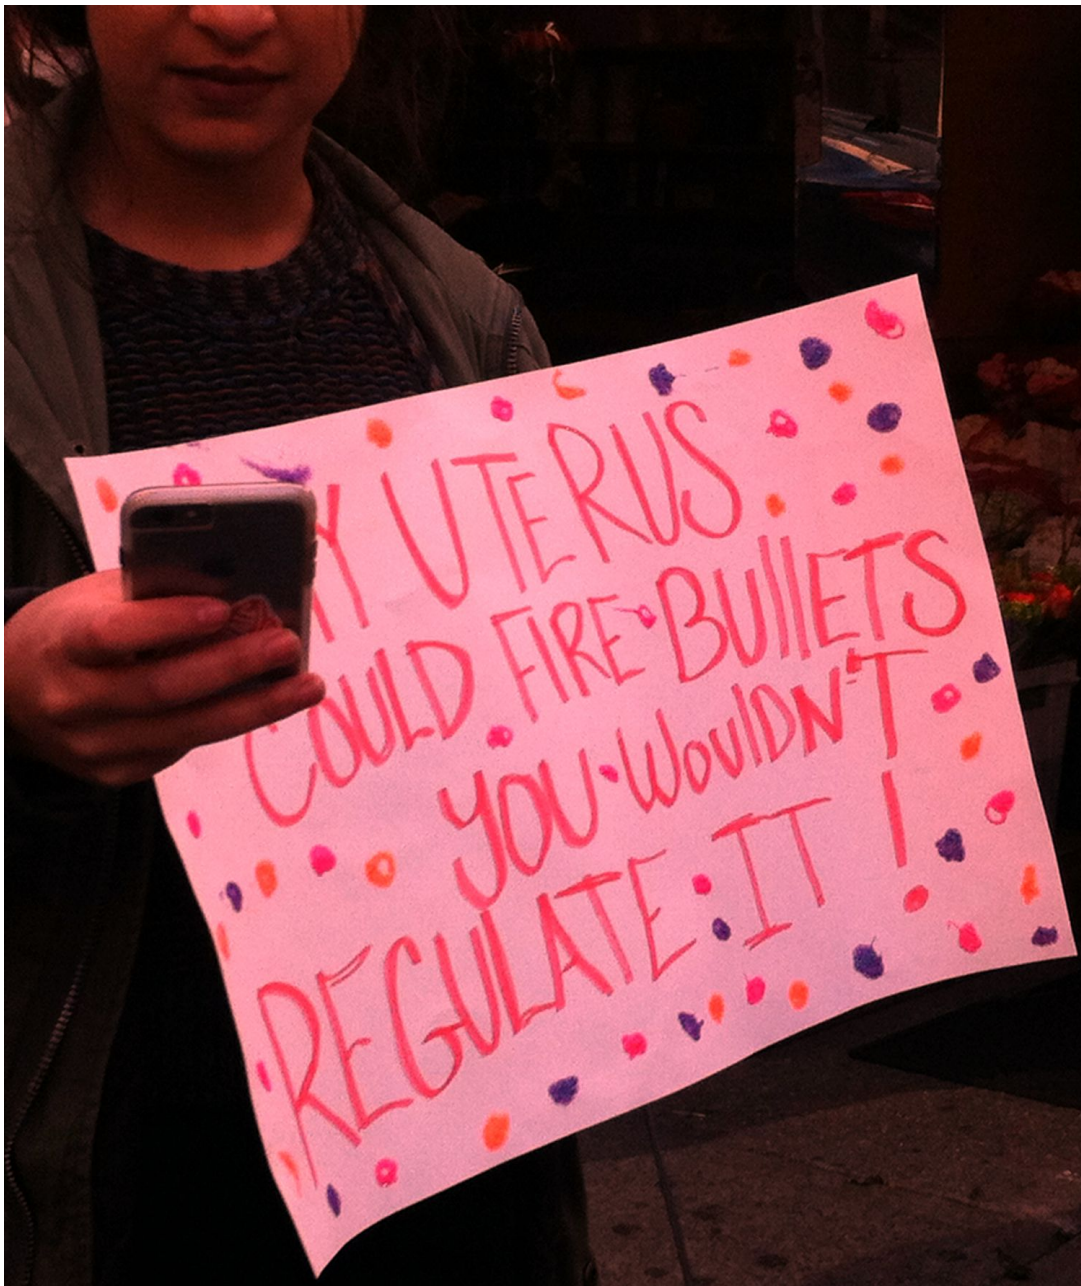 UTERUS
COULD FIRE BUllETS
YOU WOUlDN'T
REGULATE IT !